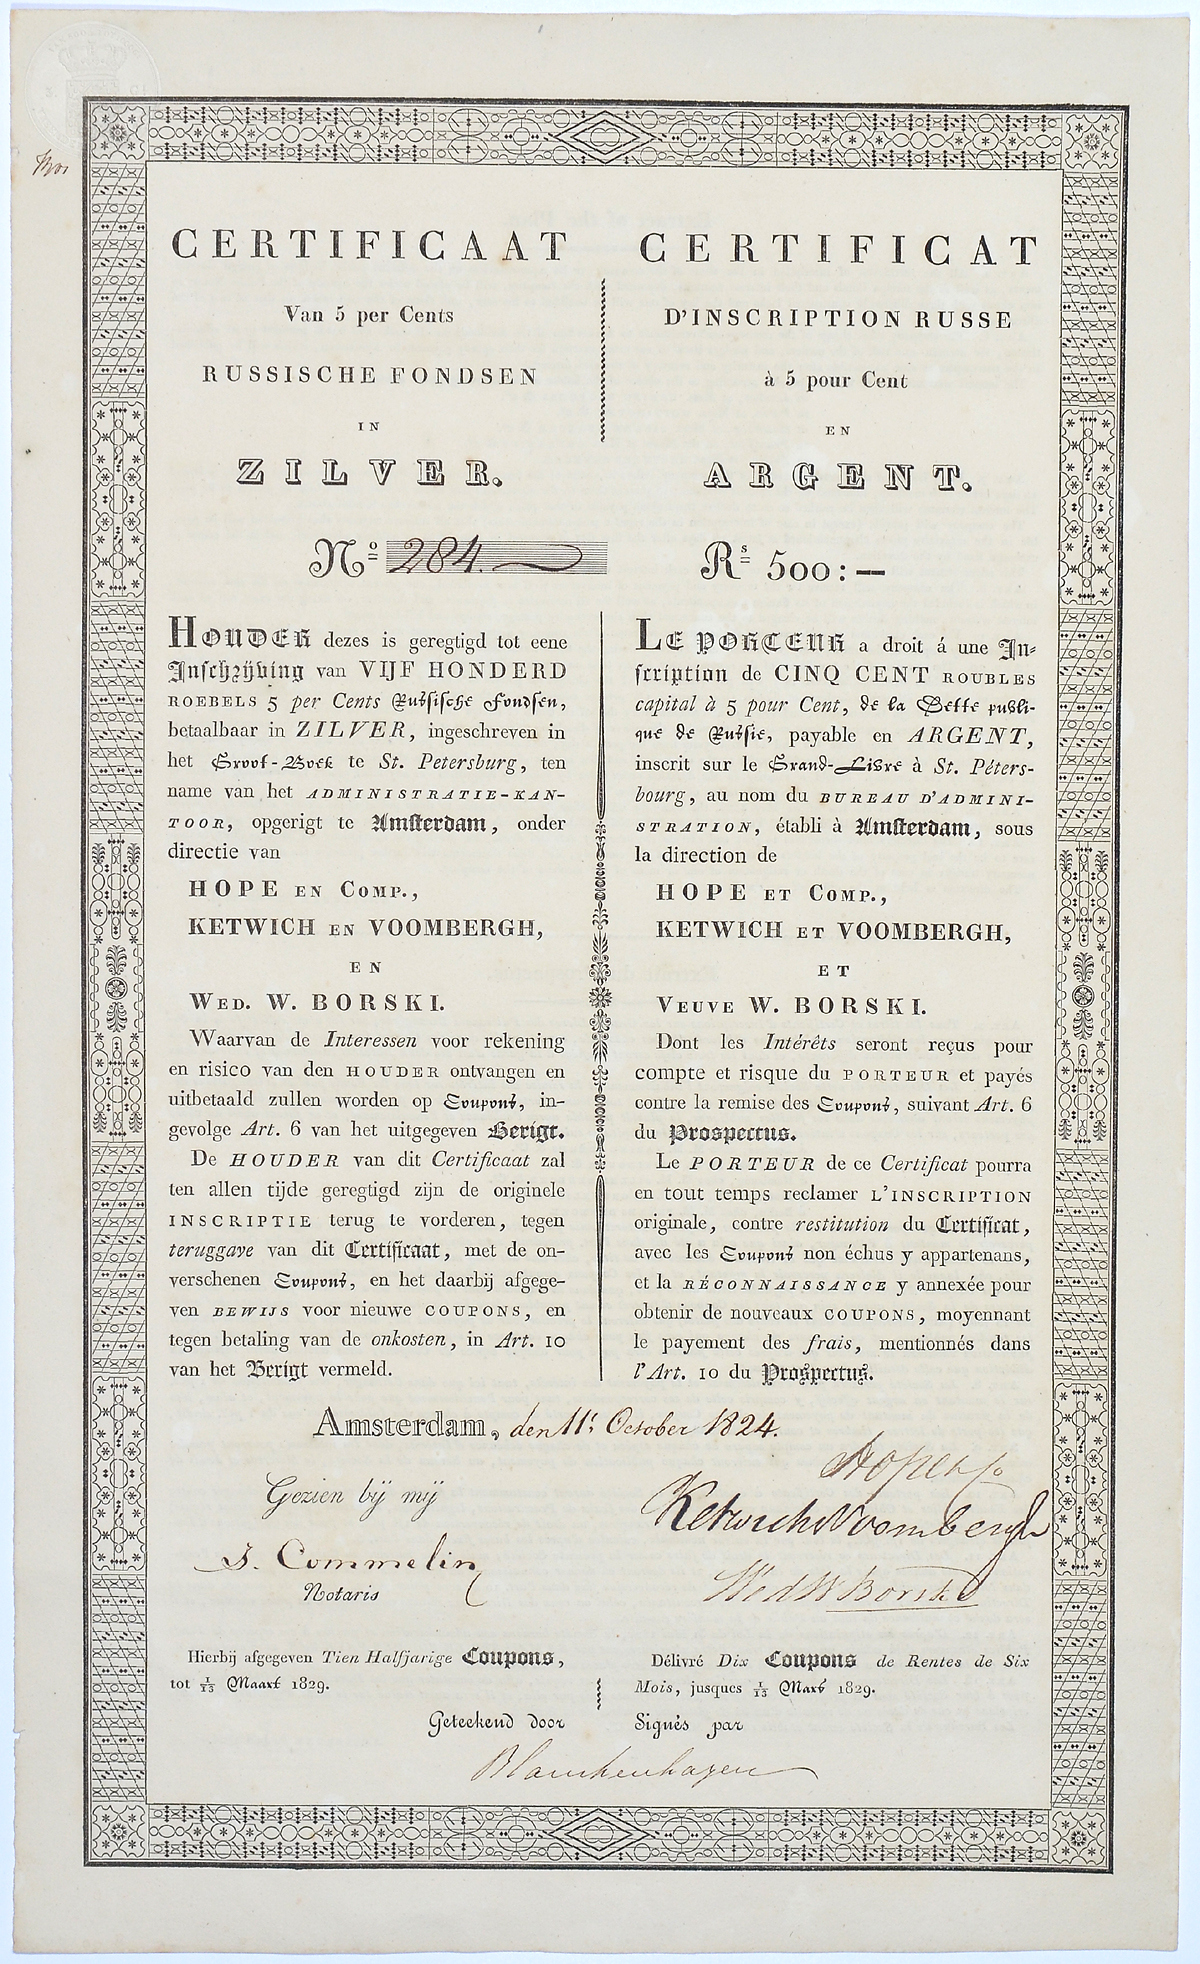 CERTIFICAAT
Van 5 per Cents
RUSSISCHE FONDSEN
IN
ZILVER.
Nº 284.
HOUDER dezes is geregtigd tot eene
Inschrijving van VIJF HONDERD
ROEBELS 5 per Cents Russische Fondsen,
betaalbaar in ZILVER, ingeschreven in
het Groot-Boek te St. Petersburg, ten
name van het ADMINISTRATIE-KAN-
TOOR, opgerigt te Amsterdam, onder
directie van
HOPE EN COMP.,
KETWICH EN VOOMBERGH,
EN
WED. W. BORSKI.
Waarvan de Interessen voor rekening
en risico van den HOUDER ontvangen en
uitbetaald zullen worden op Coupons, in-
gevolge Art. 6 van het uitgegeven Berigt.
De HOUDER van dit Certificaat zal
ten allen tijde geregtigd zijn de originele
INSCRIPTIE terug te vorderen, tegen
teruggave van dit Certificaat, met de on-
verschenen Coupons, en het daarbij afgege-
ven BEWIJS voor nieuwe COUPONS, en
tegen betaling van de onkosten, in Art. 10
van het Berigt vermeld.
CERTIFICAT
D'INSCRIPTION RUSSE
à 5 pour Cent
EN
ARGENT.
Rs 500:—
LE PORTEUR a droit á une In-
scription de CINQ CENT ROUBLES
capital à 5 pour Cent, de la Dette publi-
que de Russie, payable en ARGENT,
inscrit sur le Grand-Livre à St. Péters-
bourg, au nom du BUREAU D'ADMINI-
STRATION, établi à Amsterdam, sous
la direction de
HOPE ET COMP.,
KETWICH ET VOOMBERGH,
ET
VEUVE W. BORSKI.
Dont les Intérêts seront reçus pour
compte et risque du PORTEUR et payés
contre la remise des Coupons, suivant Art. 6
du Prospectus.
Le PORTEUR de ce Certificat pourra
en tout temps reclamer L'INSCRIPTION
originale, contre restitution du Certificat,
avec les Coupons non échus y appartenans,
et la RÉCONNAISSANCE y annexée pour
obtenir de nouveaux COUPONS, moyennant
le payement des frais, mentionnés dans
l'Art. 10 du Prospectus.
Amsterdam, den 11 October 1824.
Gezien bij mij
J. Commelin
Notaris
Hope & Co
Ketwich & Voombergh
Wed W Borski
Hierbij afgegeven Tien Halfjarige Coupons,
tot 1/13 Maart 1829.
Délivré Dix Coupons de Rentes de Six
Mois, jusques 1/13 Mars 1829.
Geteekend door
Signés par
Blanckenhagen